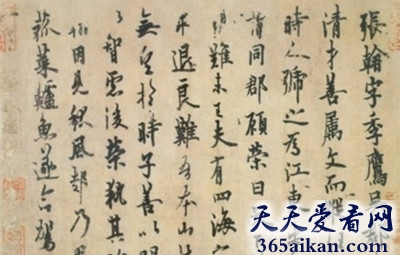 張翰字季鷹吳郡
清才善屬文而縱
時人號之為江東
謂同郡顧榮曰
難未已夫有四海
退良難吾本山林
無望於時子善以明
智慮後榮執其
翰因見秋風起乃
菰菜鱸魚遂命駕
天天爱看网
365aikan.com